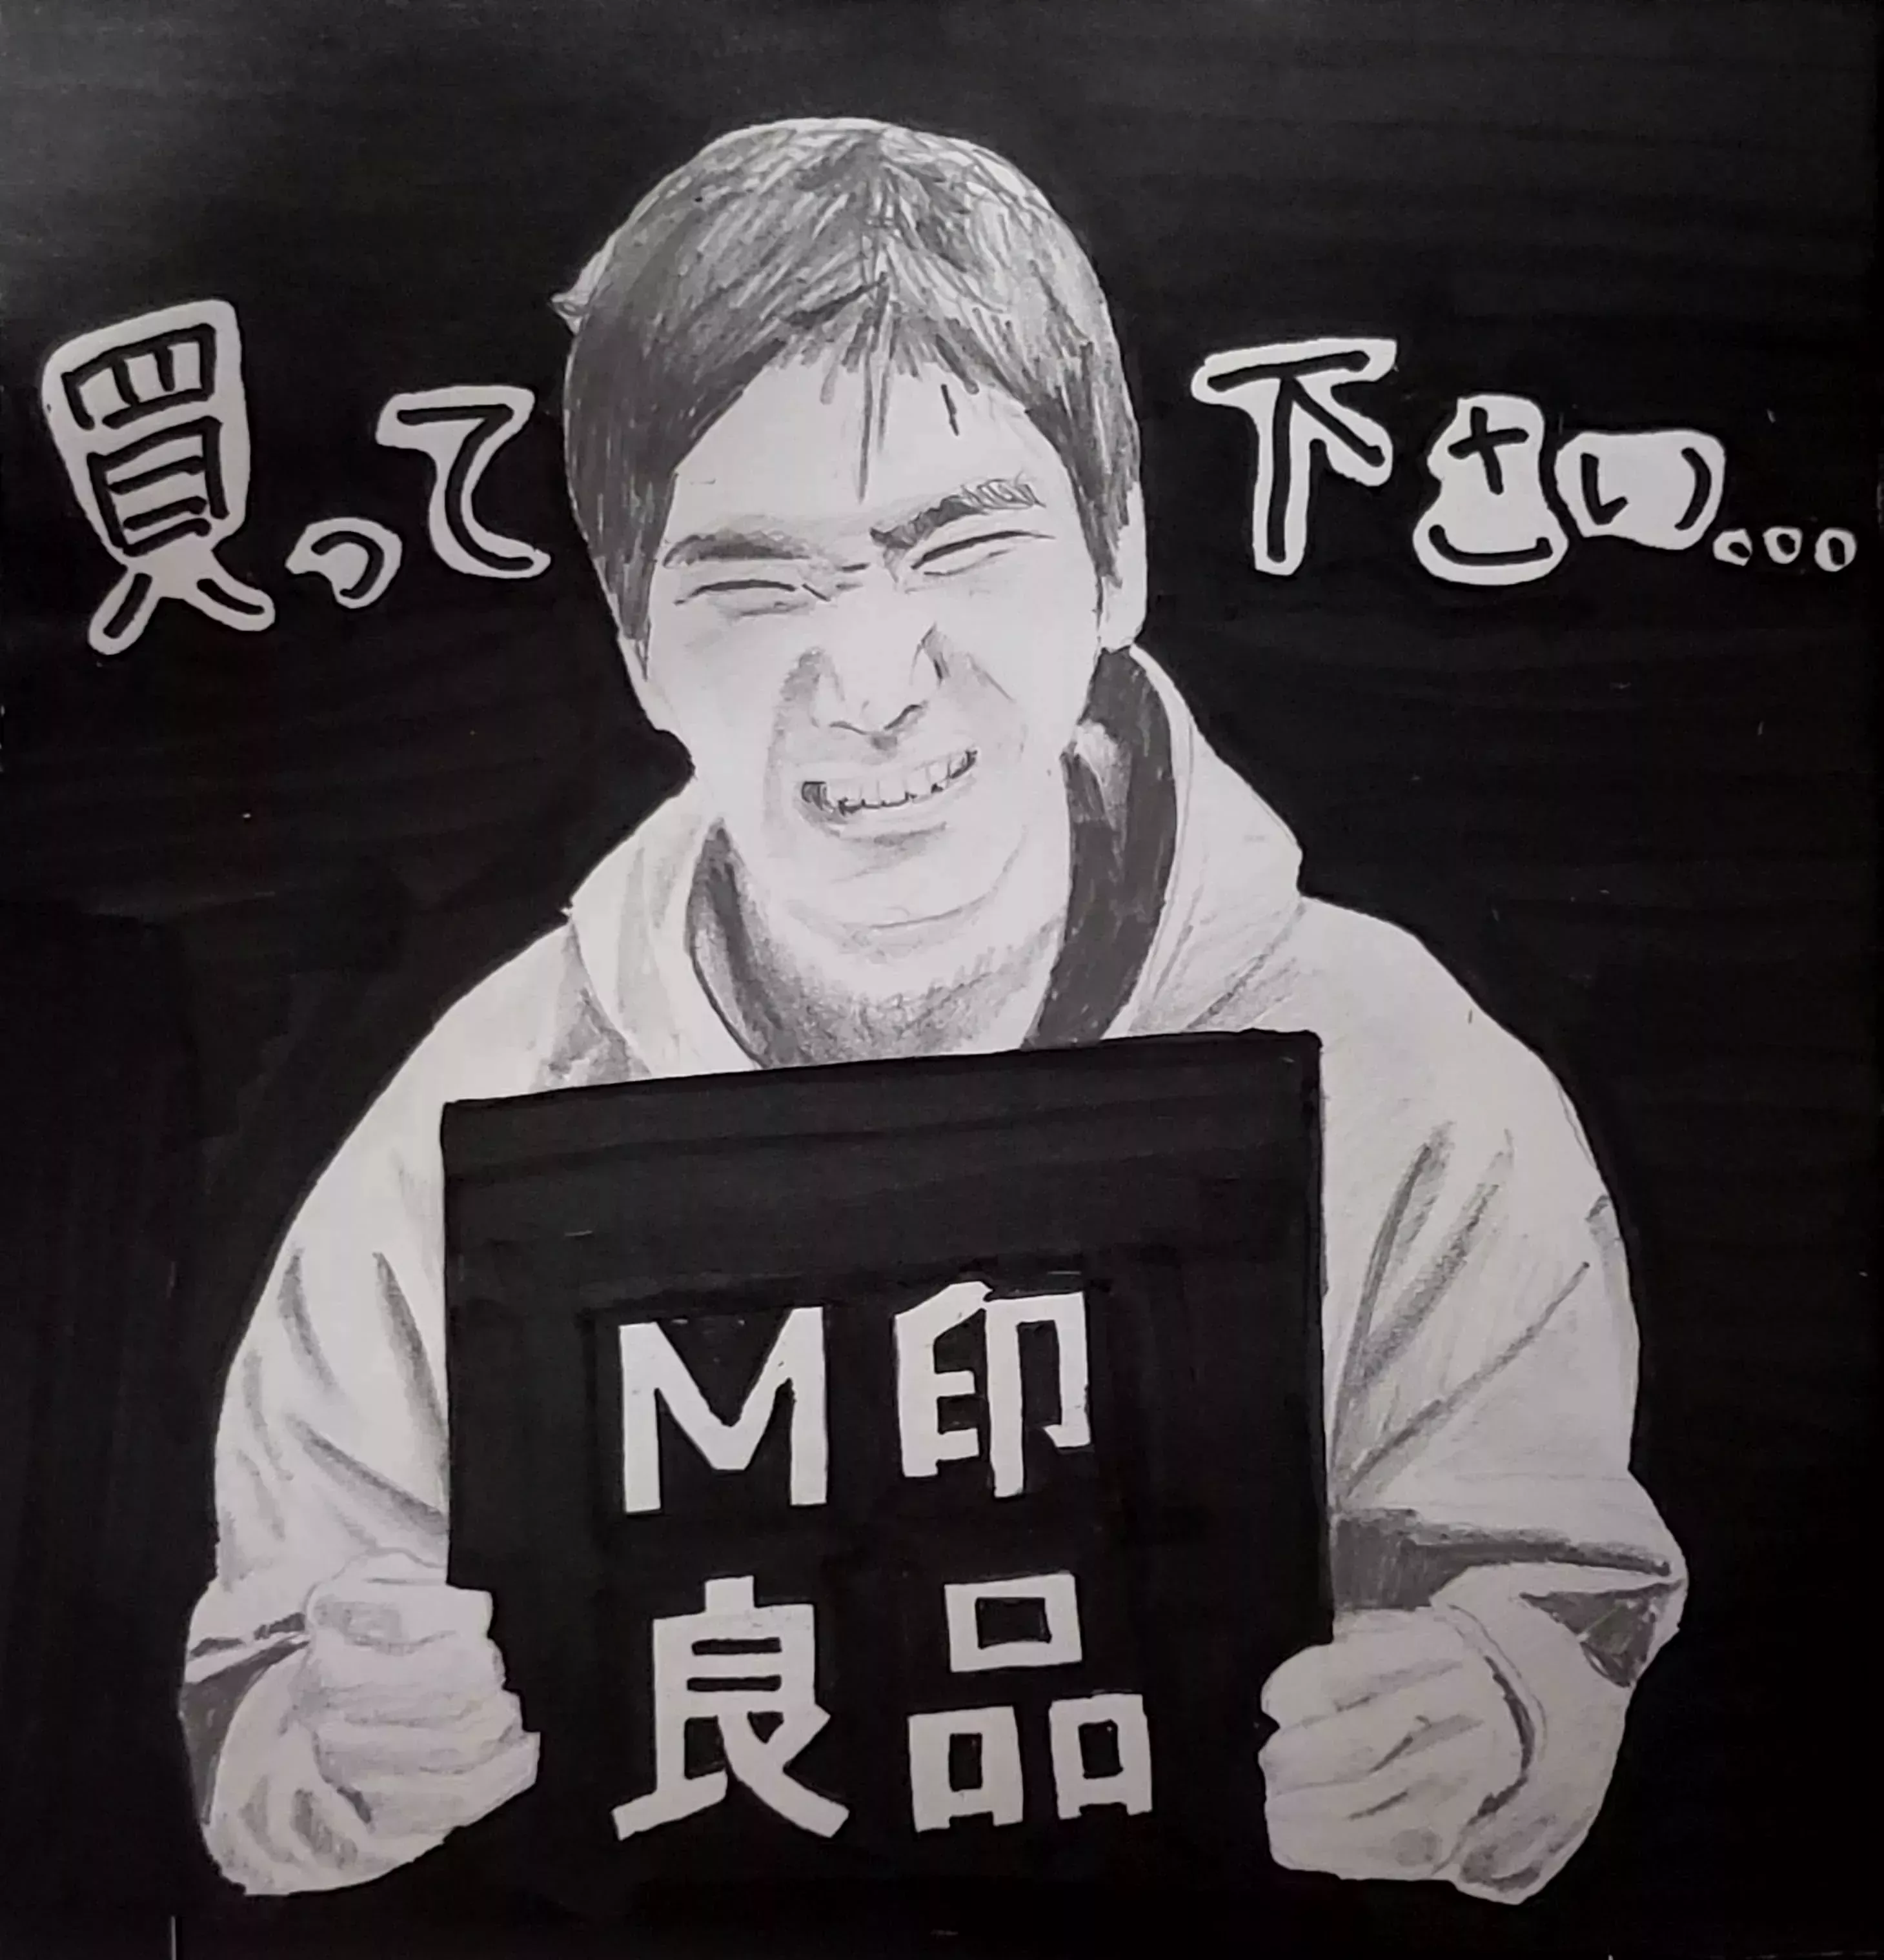 買って下さい...
M印
良品